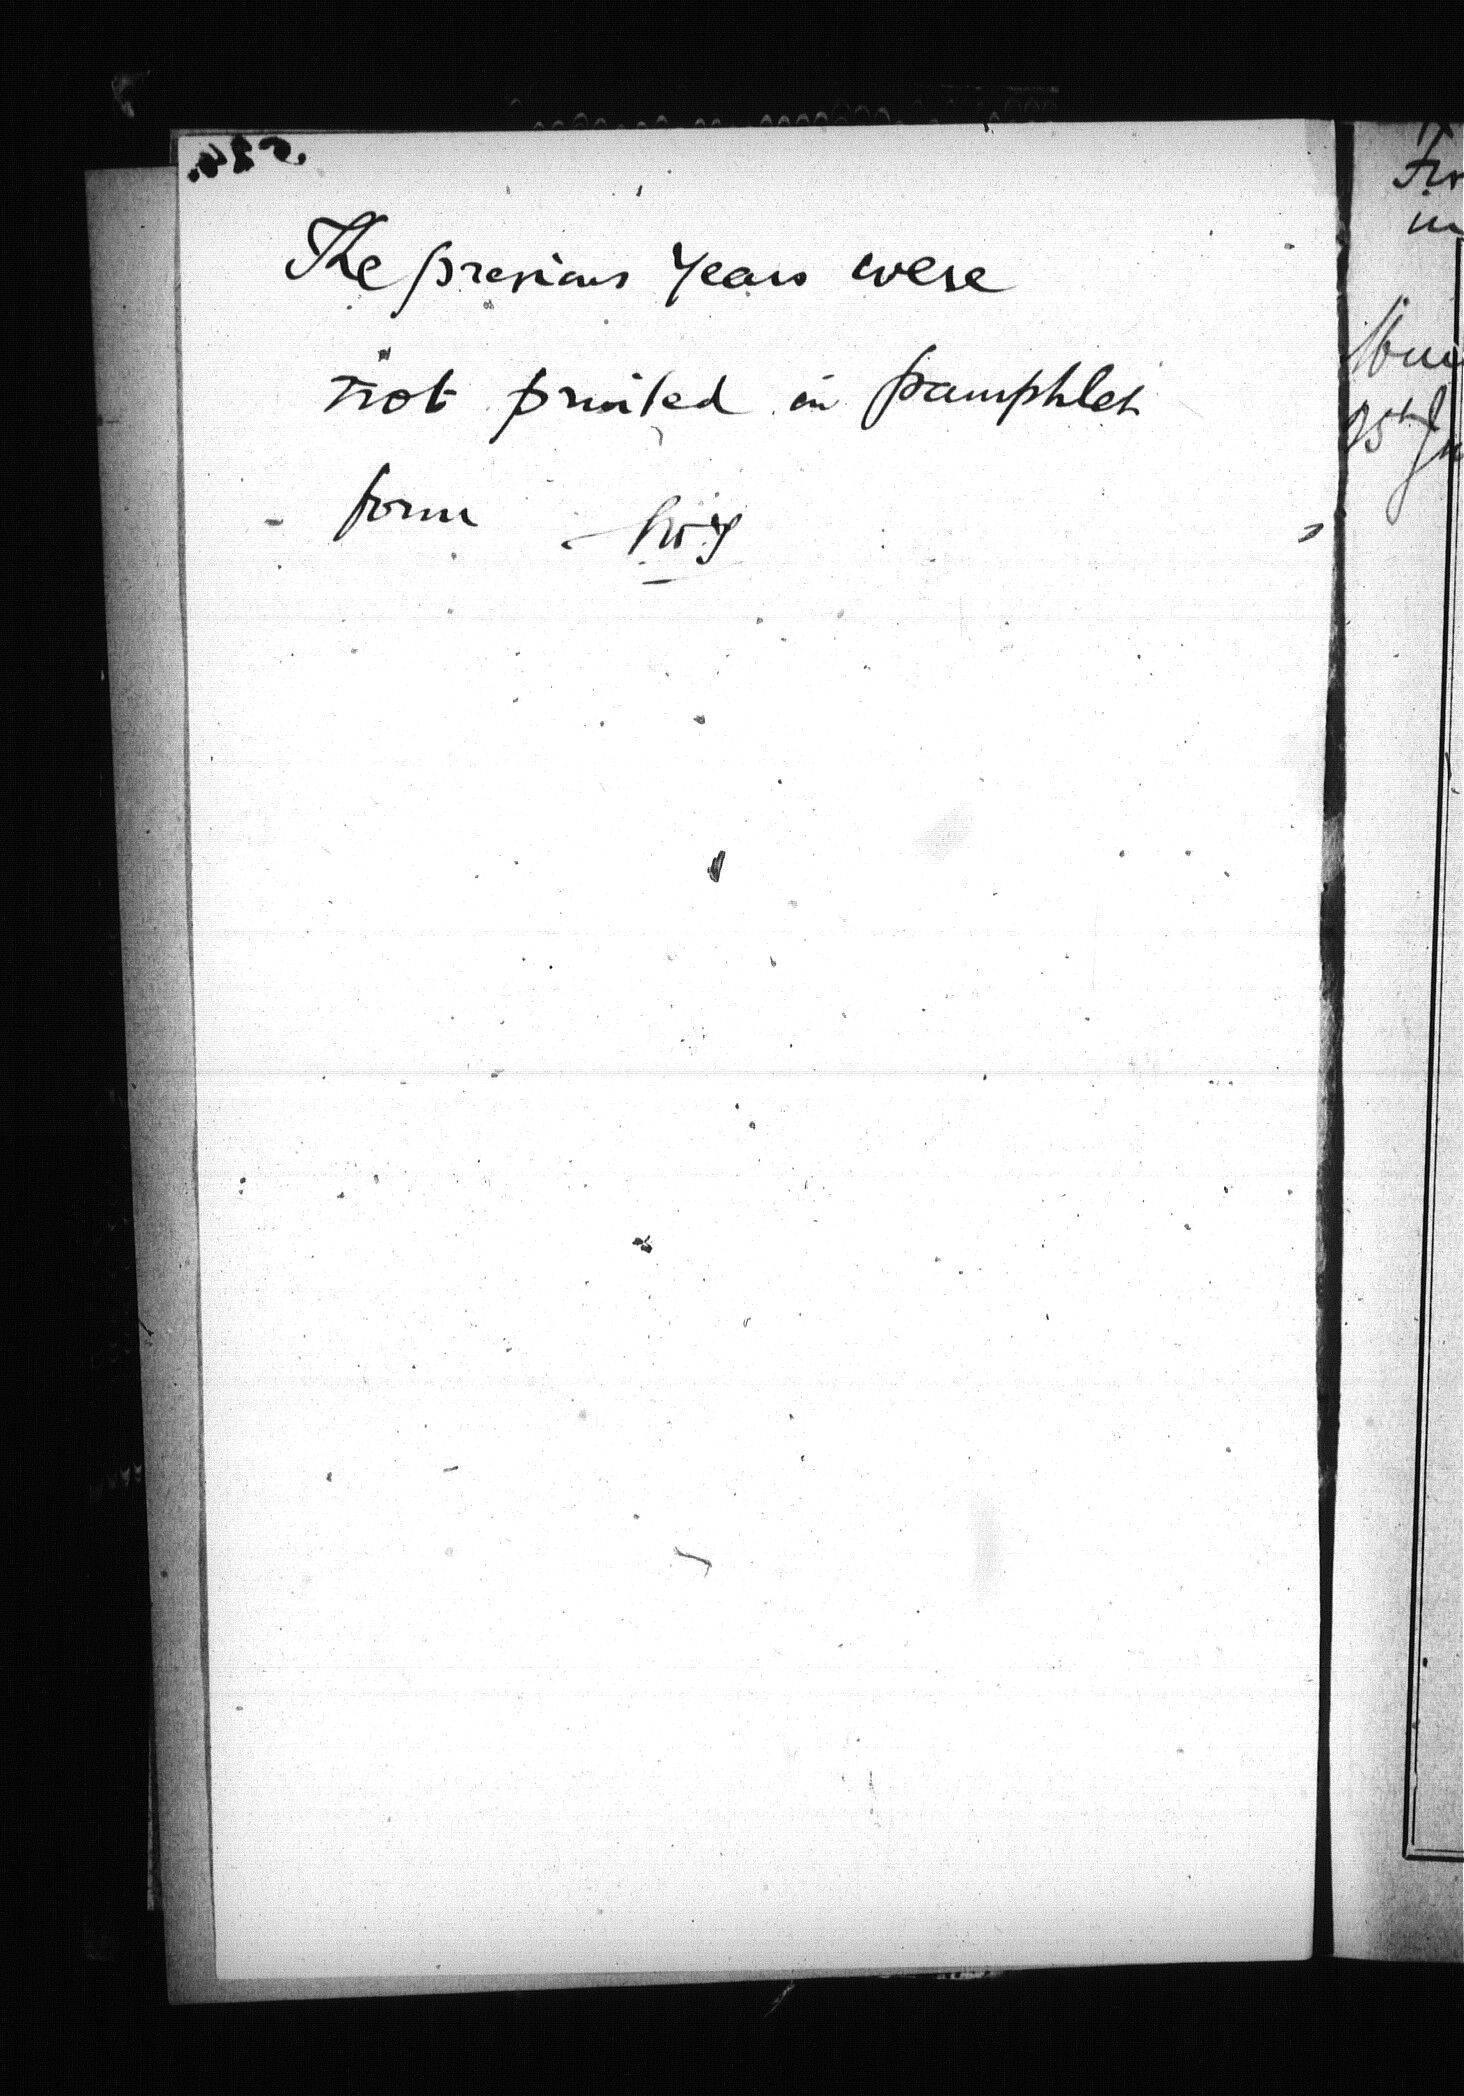 The previous years were
not printed in pamphlet
form